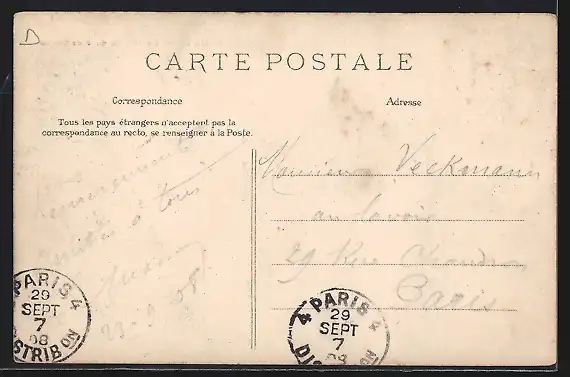 D
CARTE POSTALE
Correspondance
Adresse
Tous les pays étrangers n'acceptent pas la
correspondance au recto, se renseigner à la Poste.
à tous
23-9-08
Monsieur Veckmann
au Lavoir
29 Rue
Paris
PARIS 4
29
SEPT
7
08
DISTRIBON
4 PARIS 4
29
SEPT
7
08
DISTRIBON